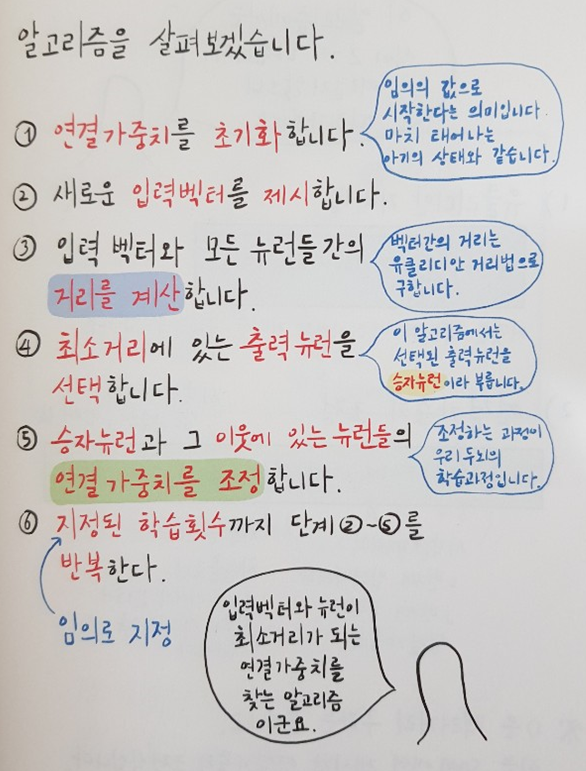 알고리즘을 살펴보겠습니다.
① 연결가중치를 초기화합니다.
임의의 값으로
시작한다는 의미입니다.
마치 태어나는
아기의 상태와 같습니다.
② 새로운 입력벡터를 제시합니다.
③ 입력 벡터와 모든 뉴런들간의
거리를 계산합니다.
벡터간의 거리는
유클리디안 거리법으로
구합니다.
④ 최소거리에 있는 출력뉴런을
선택합니다.
이 알고리즘에서는
선택된 출력뉴런을
승자뉴런이라 부릅니다.
⑤ 승자뉴런과 그 이웃에 있는 뉴런들의
연결가중치를 조정합니다.
조정하는 과정이
우리 두뇌의
학습과정입니다.
⑥ 지정된 학습횟수까지 단계②~⑤를
반복한다.
임의로 지정
입력벡터와 뉴런이
최소거리가 되는
연결가중치를
찾는 알고리즘
이군요.